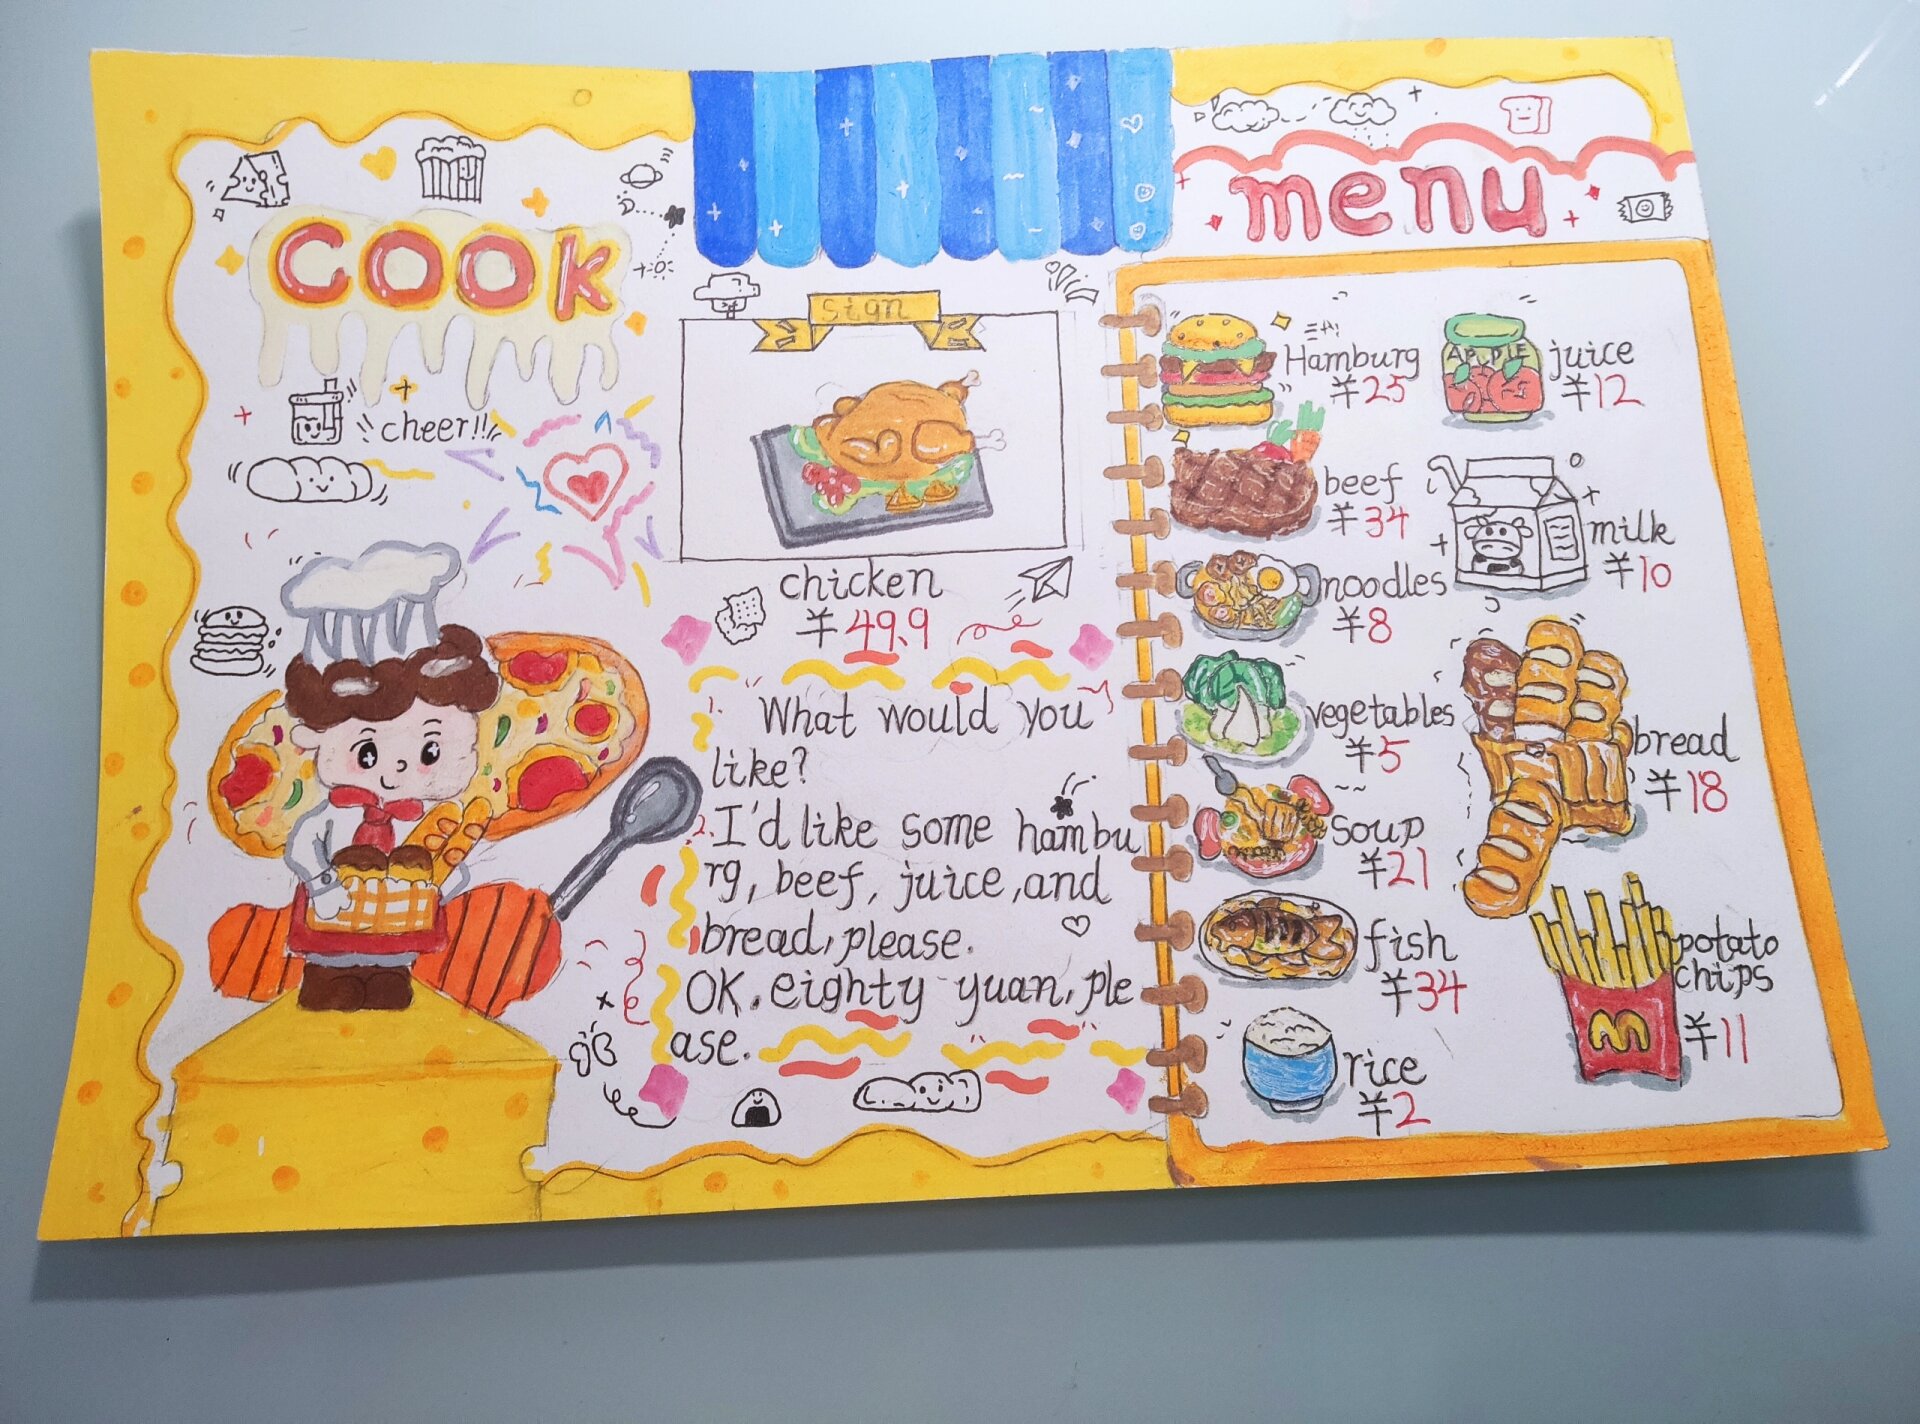 cook
cheer!!
sign
chicken
¥49.9
1. What would you
like?
2. I'd like some hambu
rg, beef, juice, and
bread, please.
OK. eighty yuan, ple
ase.
menu
Hamburg
¥25
APPLE
juice
¥12
beef
¥34
milk
¥10
noodles
¥8
vegetables
¥5
bread
¥18
soup
¥21
fish
¥34
potato
chips
¥11
rice
¥2